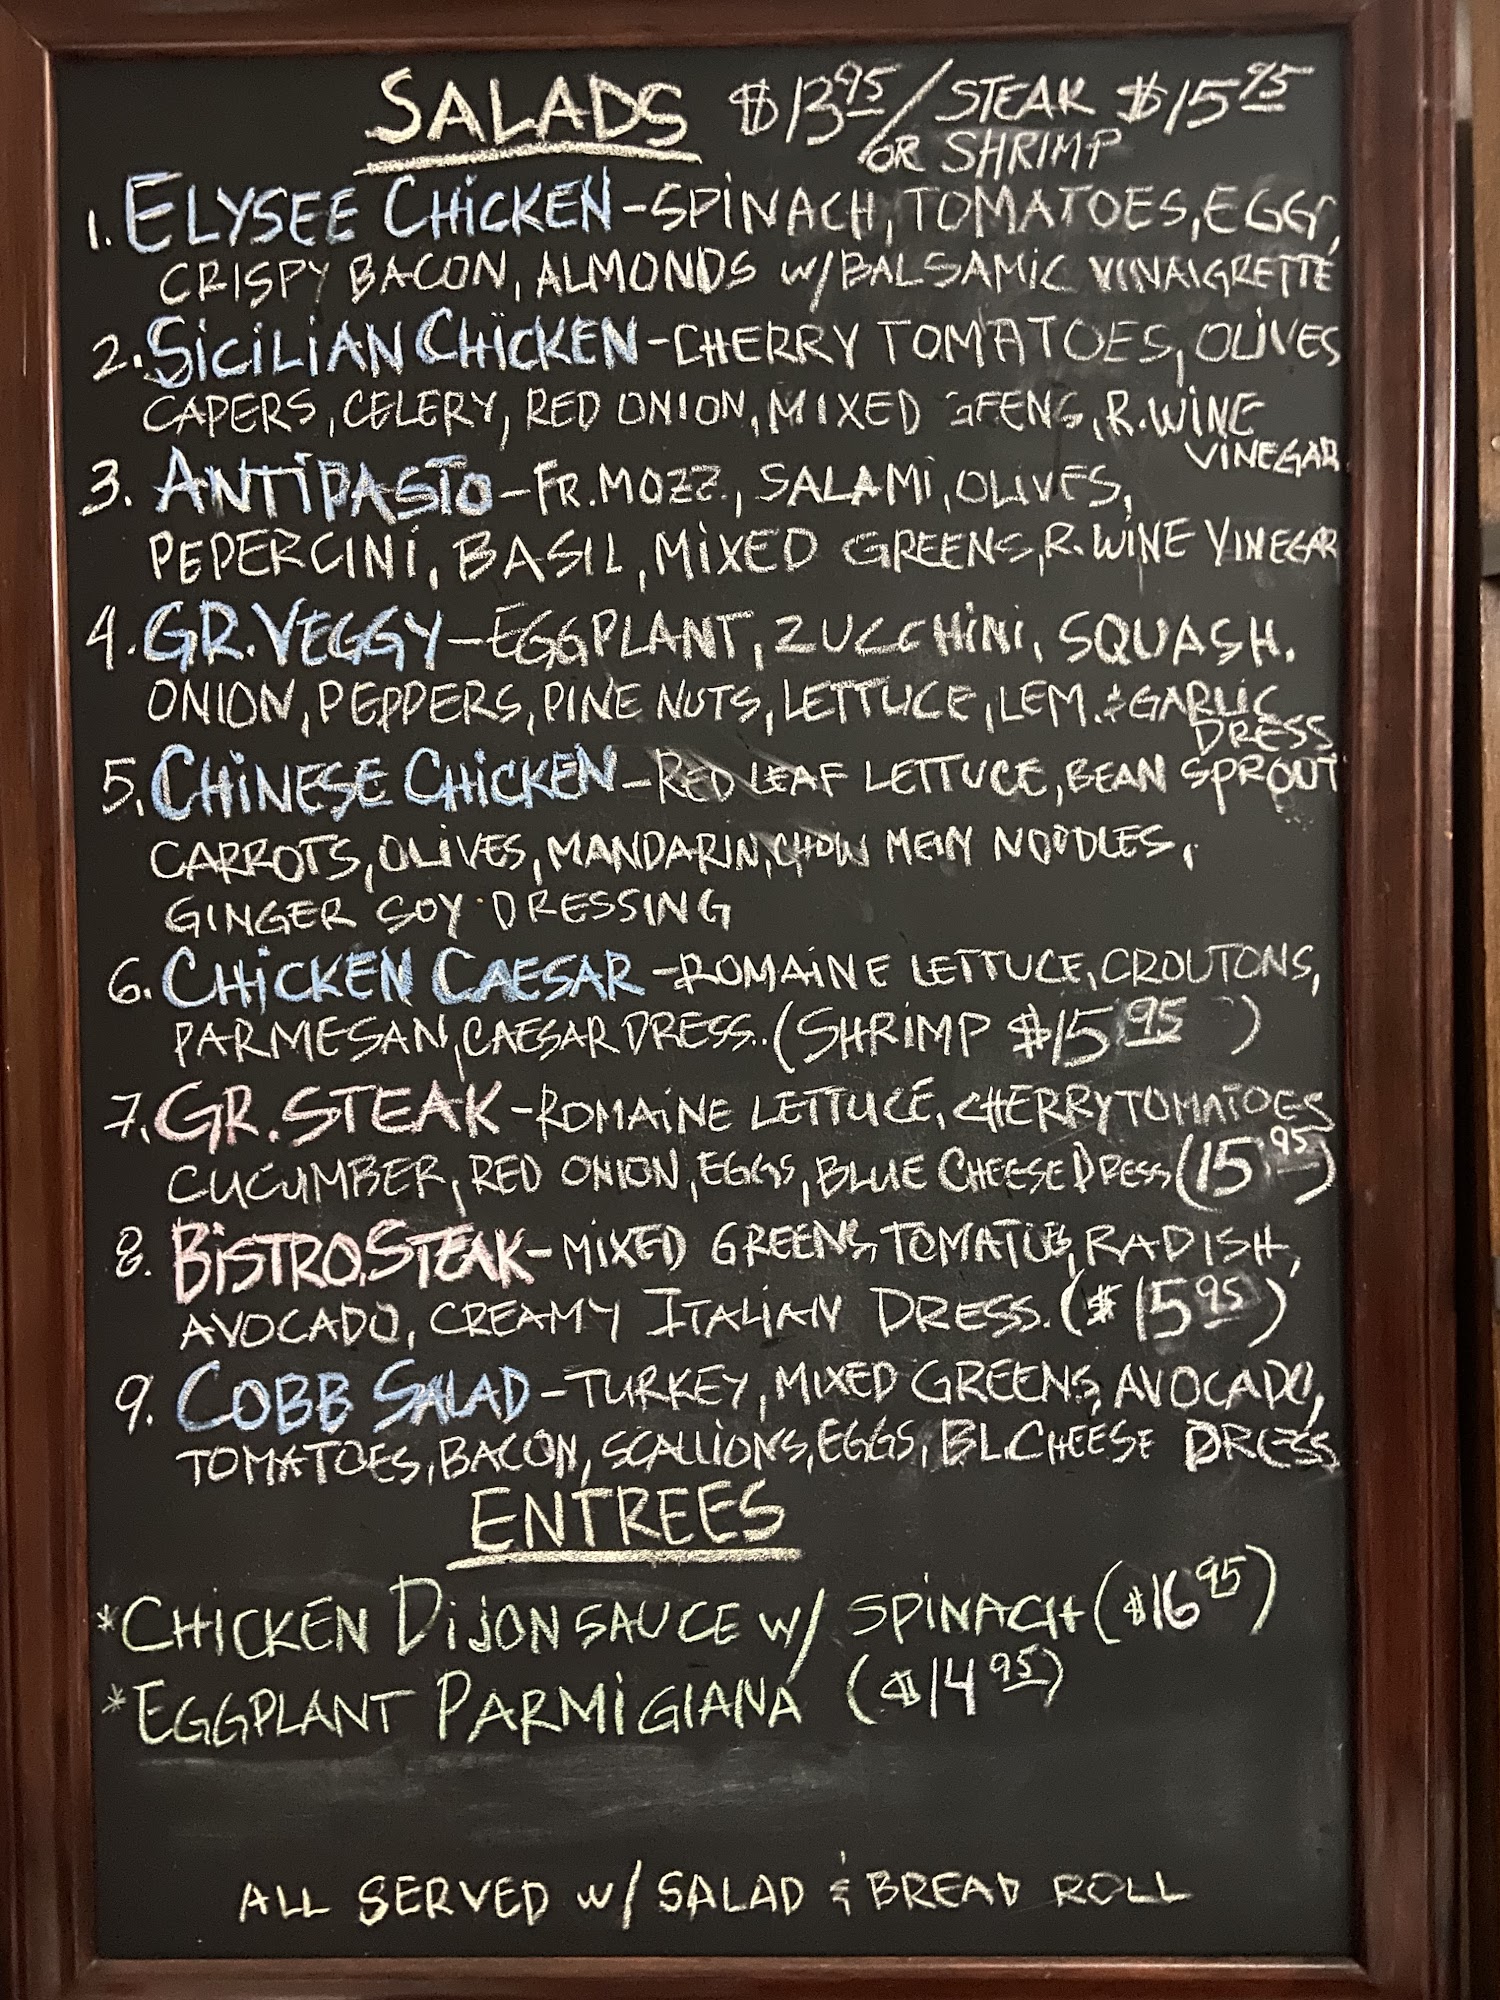 SALADS $13.95/STEAK $15.95
OR SHRIMP
1. ELYSEE CHICKEN-SPINACH, TOMATOES, EGG,
CRISPY BACON, ALMONDS W/BALSAMIC VINAIGRETTE
2. SICILIAN CHICKEN-CHERRY TOMATOES, OLIVES
CAPERS, CELERY, RED ONION, MIXED GREENS, R.WINE
VINEGAR
3. ANTIPASTO-FR.MOZZ., SALAMI, OLIVES,
PEPERCINI, BASIL, MIXED GREENS, R.WINE VINEGAR
4. GR.VEGGY-EGGPLANT, ZUCCHINI, SQUASH.
ONION, PEPPERS, PINE NUTS, LETTUCE, LEM.&GARLIC
DRESS
5. CHINESE CHICKEN-RED LEAF LETTUCE, BEAN SPROUT
CARROTS, OLIVES, MANDARIN, CHOW MEIN NOODLES,
GINGER SOY DRESSING
6. CHICKEN CAESAR-ROMAINE LETTUCE, CROUTONS,
PARMESAN, CAESAR DRESS. (SHRIMP $15.95)
7. GR.STEAK-ROMAINE LETTUCE, CHERRY TOMATOES
CUCUMBER, RED ONION, EGGS, BLUE CHEESE DRESS (15.95)
8. BISTRO.STEAK-MIXED GREENS, TOMATOES, RADISH,
AVOCADO, CREAMY ITALIAN DRESS. ($15.95)
9. COBB SALAD-TURKEY, MIXED GREENS, AVOCADO,
TOMATOES, BACON, SCALLIONS, EGGS, BL.CHEESE DRESS
ENTREES
*CHICKEN DIJON SAUCE W/ SPINACH ($16.95)
*EGGPLANT PARMIGIANA ($14.95)
ALL SERVED W/ SALAD & BREAD ROLL